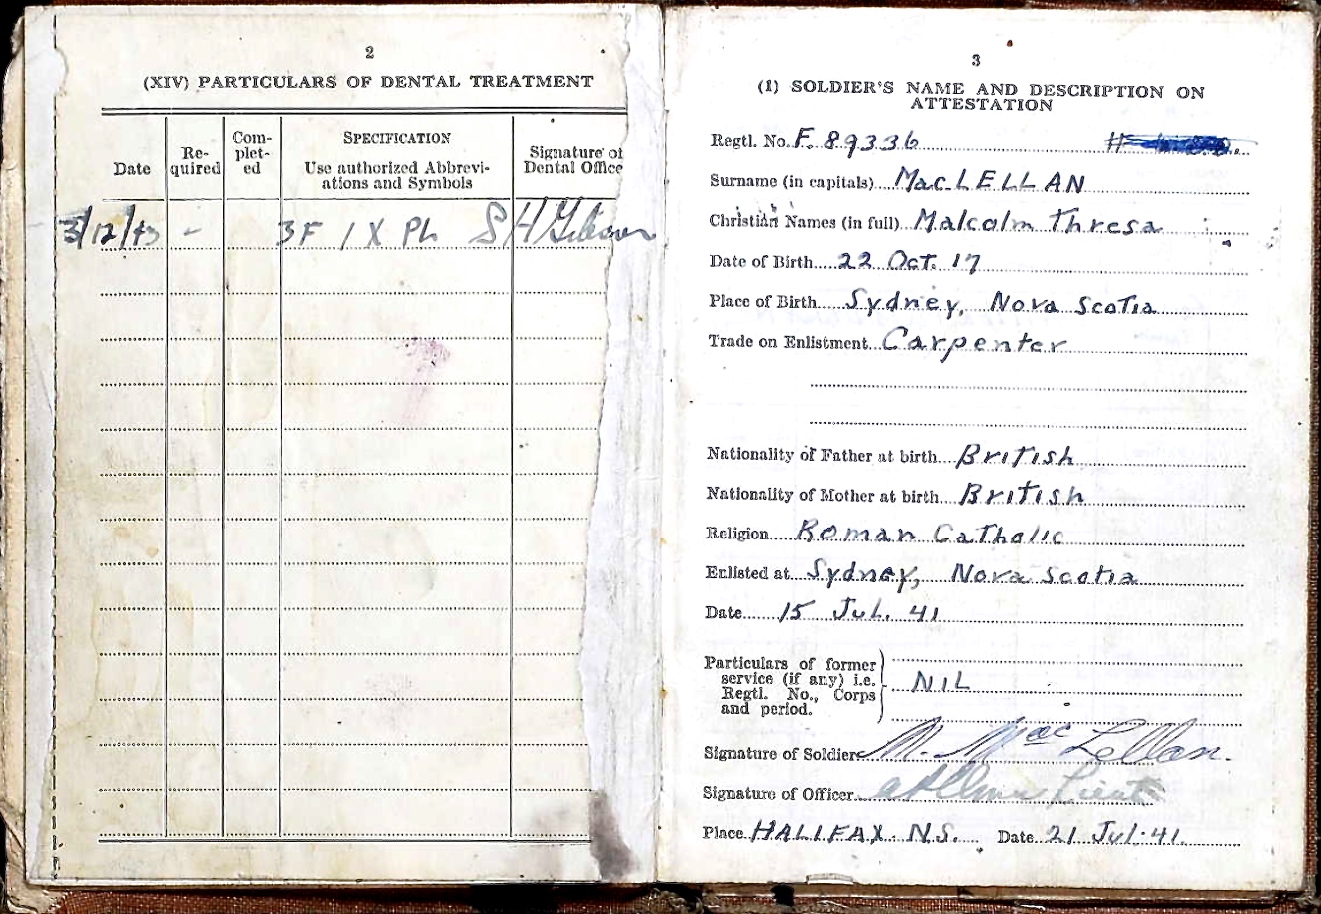 2
(XIV) PARTICULARS OF DENTAL TREATMENT
Date
Re-
quired
Com-
plet-
ed
SPECIFICATION
Use authorized Abbrevi-
ations and Symbols
Signature of
Dental Office
3/12/43 - 3F 1 X Ph S H
3
(1) SOLDIER'S NAME AND DESCRIPTION ON
ATTESTATION
Regtl. No. F. 89336
Surname (in capitals) MacLELLAN
Christian Names (in full) Malcolm Thresa
Date of Birth 22 Oct. 17
Place of Birth Sydney, Nova Scotia
Trade on Enlistment Carpenter
Nationality of Father at birth British
Nationality of Mother at birth British
Religion Roman Catholic
Enlisted at Sydney, Nova Scotia
Date 15 Jul. 41
Particulars of former
service (if any) i.e.
Regtl. No., Corps
and period.
NIL
Signature of Soldier M. MacLellan.
Signature of Officer Lieut
Place HALIFAX. N.S. Date 21 Jul. 41.